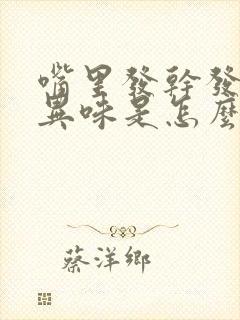 嘴里發幹發
異味是怎麽
蔡洋鄉